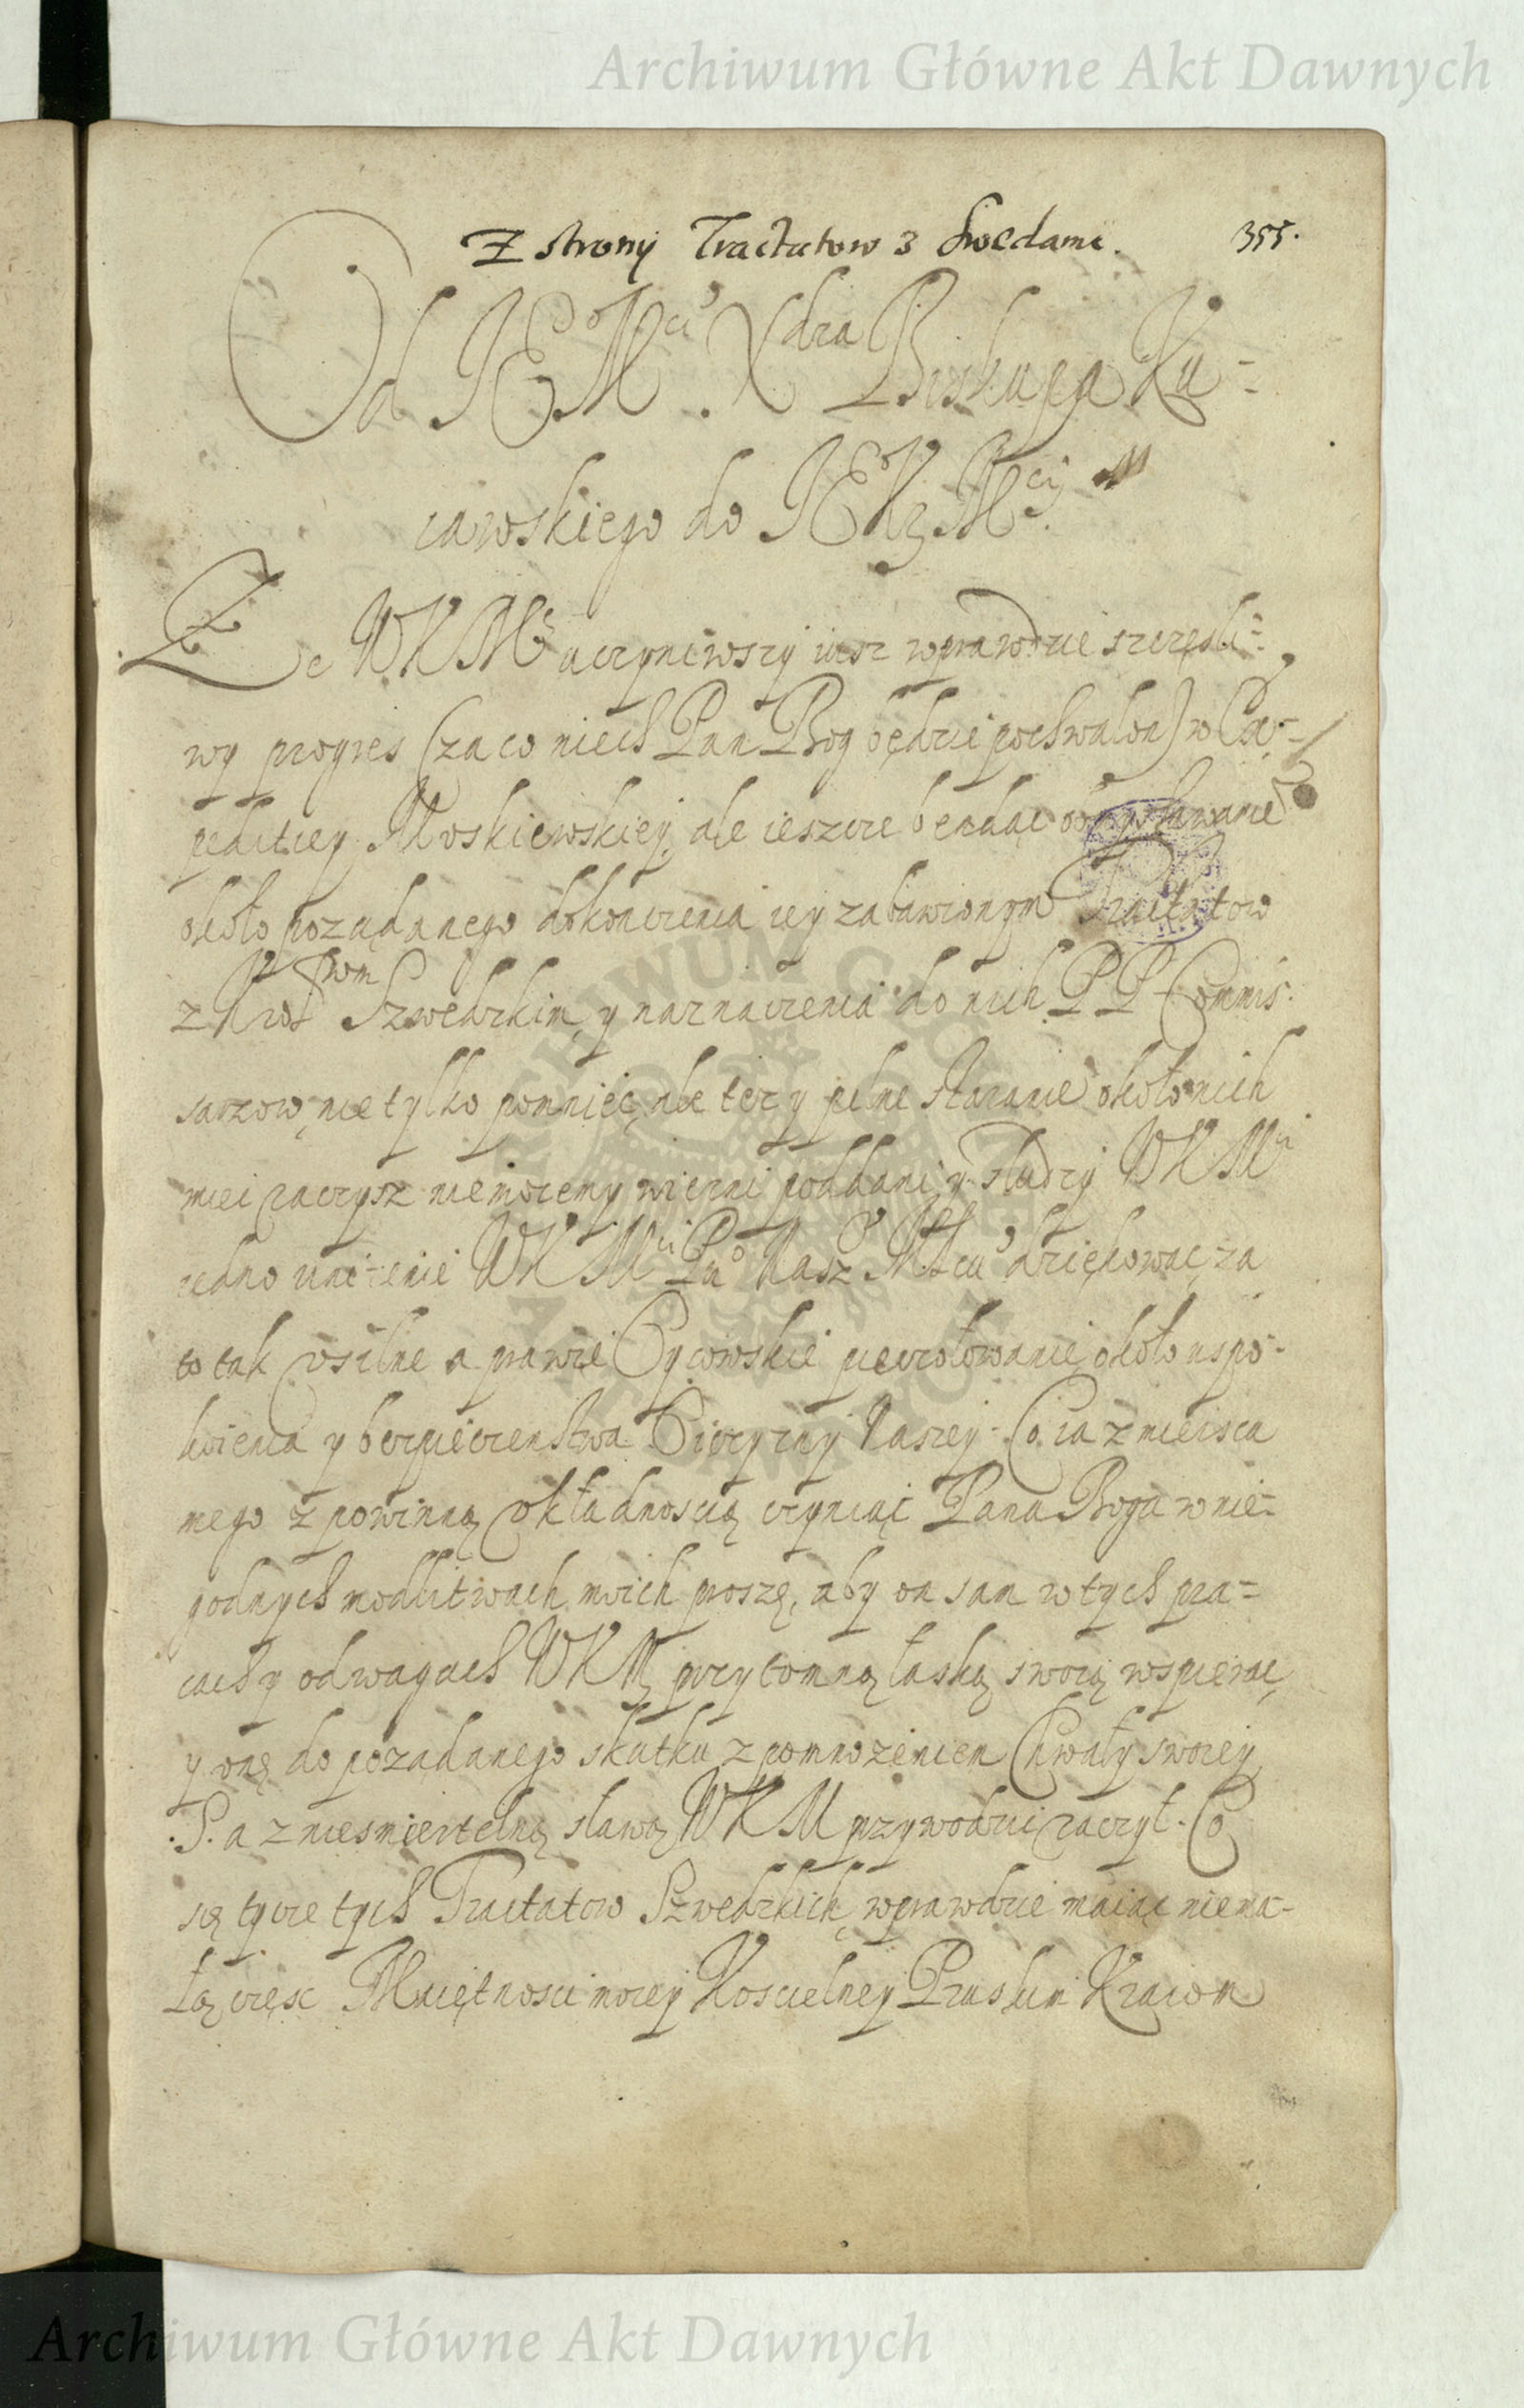 Archiwum Główne Akt Dawnych
Z strony Tractatow z Swedami. 355.
Od JEoMci Xdza Biskupa Ku=
iawskiego do JEoKrMci
Ze WKMć uczyniwszy iusz wprawdzie szczęśli=
wy progres (za co niech Pan Bog będzie pochwalon) w Ex=
pedítiey Moskiewskiey, ale ieszcze będąc
około pożądanego dokonczenia iey zabawionym Tractatow
z Krolwm Szwedzkim, y naznaczenia do nich PP Commis:
sarzow, nie tylko pomnieć, ale tez y pilne staranie około nich
miec raczysz nie możemy wierni poddani y słudzy WKMci
iedno unizenie WKMci Pu° Nasz° Mscu dziękować za
to tak usilne a prawie Oycowskie piecołowanie około uspo=
koienia y bezpieczenstwa Oyczyzny Naszey. Co ia z mieisca
mego z powinną Okładnoscią czyniąc Pana Boga w nie=
godnych modlitwach moich proszę, aby on sam w tych pra=
cach y odwagach WKM przytomną łaską swoią wspierać,
y onę do pożądanego skutku z pomnożeniem Chwały swoiey
S. a z niesmiertelną sławą WKM przywodzić raczył. Co
się tycze tych Tractatow Szwedzkich, wprawdzie maiąc niema=
łą częsc Maiętnosci moiey Koscielney Pruskim Kraiom
Archiwum Główne Akt Dawnych